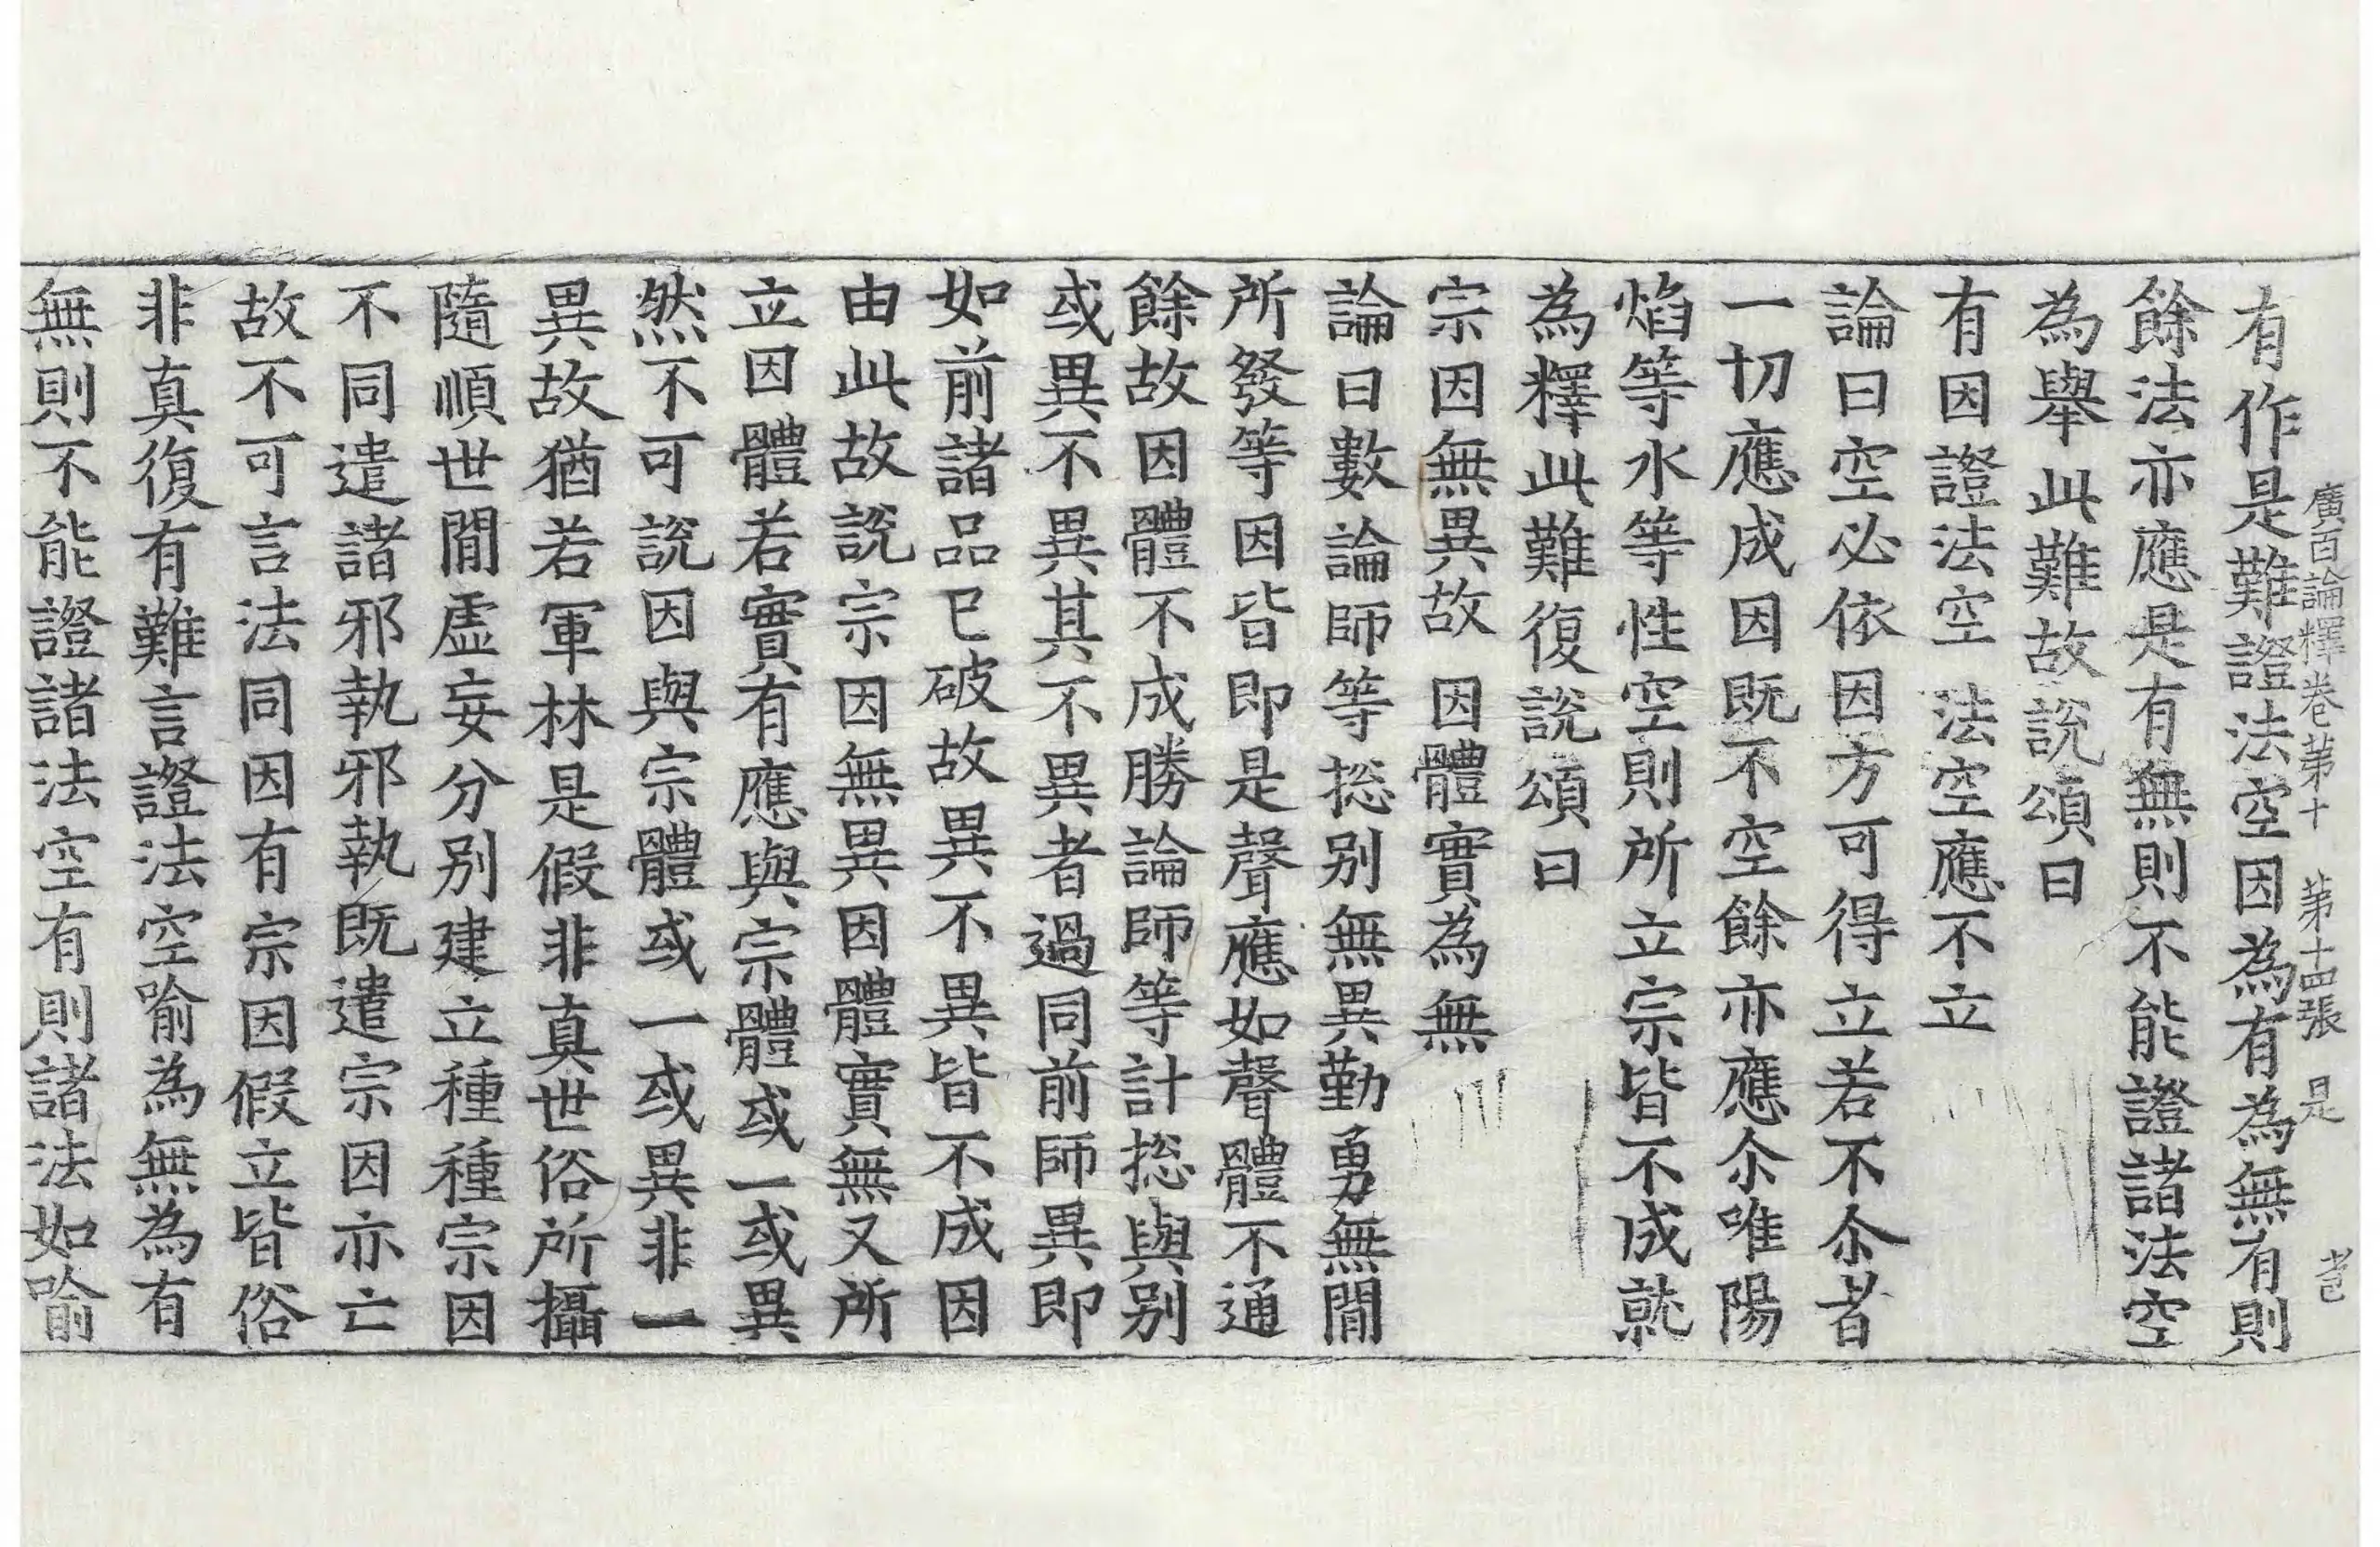 廣百論釋卷第十　第十四張　是
有作是難證法空因為有為無有則
餘法亦應是有無則不能證諸法空
為舉此難故說頌曰
有因證法空　法空應不立
論曰空必依因方可得立若不尒者
一切應成因既不空餘亦應尒唯陽
焰等水等性空則所立宗皆不成就
為釋此難復說頌曰
宗因無異故　因體實為無
論曰數論師等捴別無異勤勇無閒
所發等因皆即是聲應如聲體不通
餘故因體不成勝論師等計捴與別
或異不異其不異者過同前師異即
如前諸品已破故異不異皆不成因
由此故說宗因無異因體實無又所
立因體若實有應與宗體或一或異
然不可說因與宗體或一或異非一
異故猶若軍林是假非真世俗所攝
隨順世閒虛妄分別建立種種宗因
不同遣諸邪執邪執既遣宗因亦亡
故不可言法同因有宗因假立皆俗
非真復有難言證法空喻為無為有
無則不能證諸法空有則諸法如喻